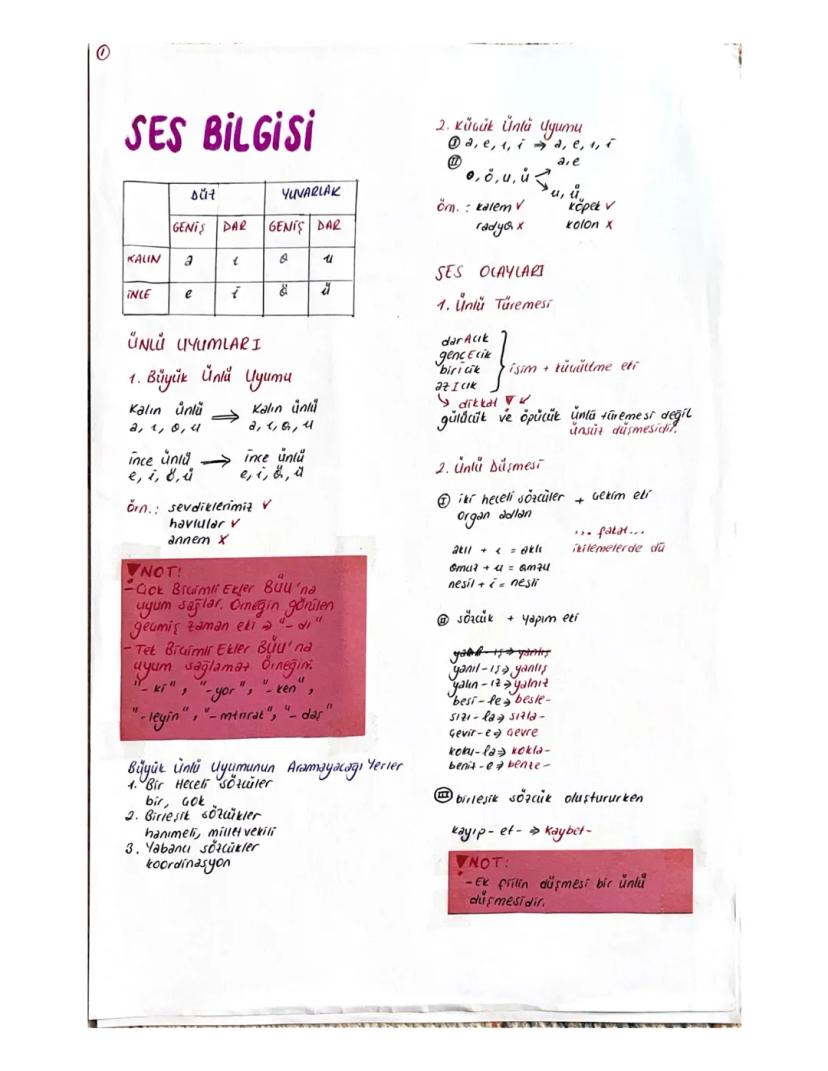 1
SES BİLGİSİ
DÜZ YUVARLAK
GENİŞ DAR GENİŞ DAR
KALIN a ı o u
İNCE e i ö ü
ÜNLÜ UYUMLARI
1. Büyük Ünlü Uyumu
Kalın ünlü ⇒ Kalın ünlü
a, ı, o, u a, ı, o, u
ince ünlü → ince ünlü
e, i, ö, ü e, i, ö, ü
örn.: sevdiklerimiz ✓
havlular ✓
annem X
NOT:
- Çok Biçimli Ekler BÜU'na
uyum sağlar. Örneğin görülen
geçmiş zaman eki → "-dı"
- Tek Biçimli Ekler BÜU'na
uyum sağlamaz. Örneğin:
"-ki", "-yor", "-ken",
"-leyin", "-mtırak", "-daş"
Büyük Ünlü Uyumunun Aranmayacağı Yerler
1. Bir Heceli sözcüler
bir, çok
2. Birleşik sözcükler
hanımeli, milletvekili
3. Yabancı sözcükler
koordinasyon
2. Küçük Ünlü Uyumu
I a, e, ı, i ⇒ a, e, ı, i
II o, ö, u, ü a, e
u, ü
örn.: kalem ✓ köpek ✓
radyo X kolon X
SES OLAYLARI
1. Ünlü Türemesi
darAcık
gençEcik
biricik
azIcık
isim + küçültme eki
dikkat
gülücük ve öpücük ünlü türemesi değil
ünsüz düşmesidir.
2. Ünlü Düşmesi
I iki heceli sözcüler + çekim eki
organ adları
... fakat...
ikilemelerde dü
akıl + ı = aklı
omuz + u = omzu
nesil + i = nesli
II sözcük + yapım eki
yanıl-ış → yanlış
yalın-ız → yalnız
besi-le → besle-
sızı-la → sızla-
çevir-e → çevre
koku-la → kokla-
beniz-e → benze-
III birleşik sözcük oluştururken
kayıp- et- ⇒ kaybet-
NOT:
- Ek fiilin düşmesi bir ünlü
düşmesidir.